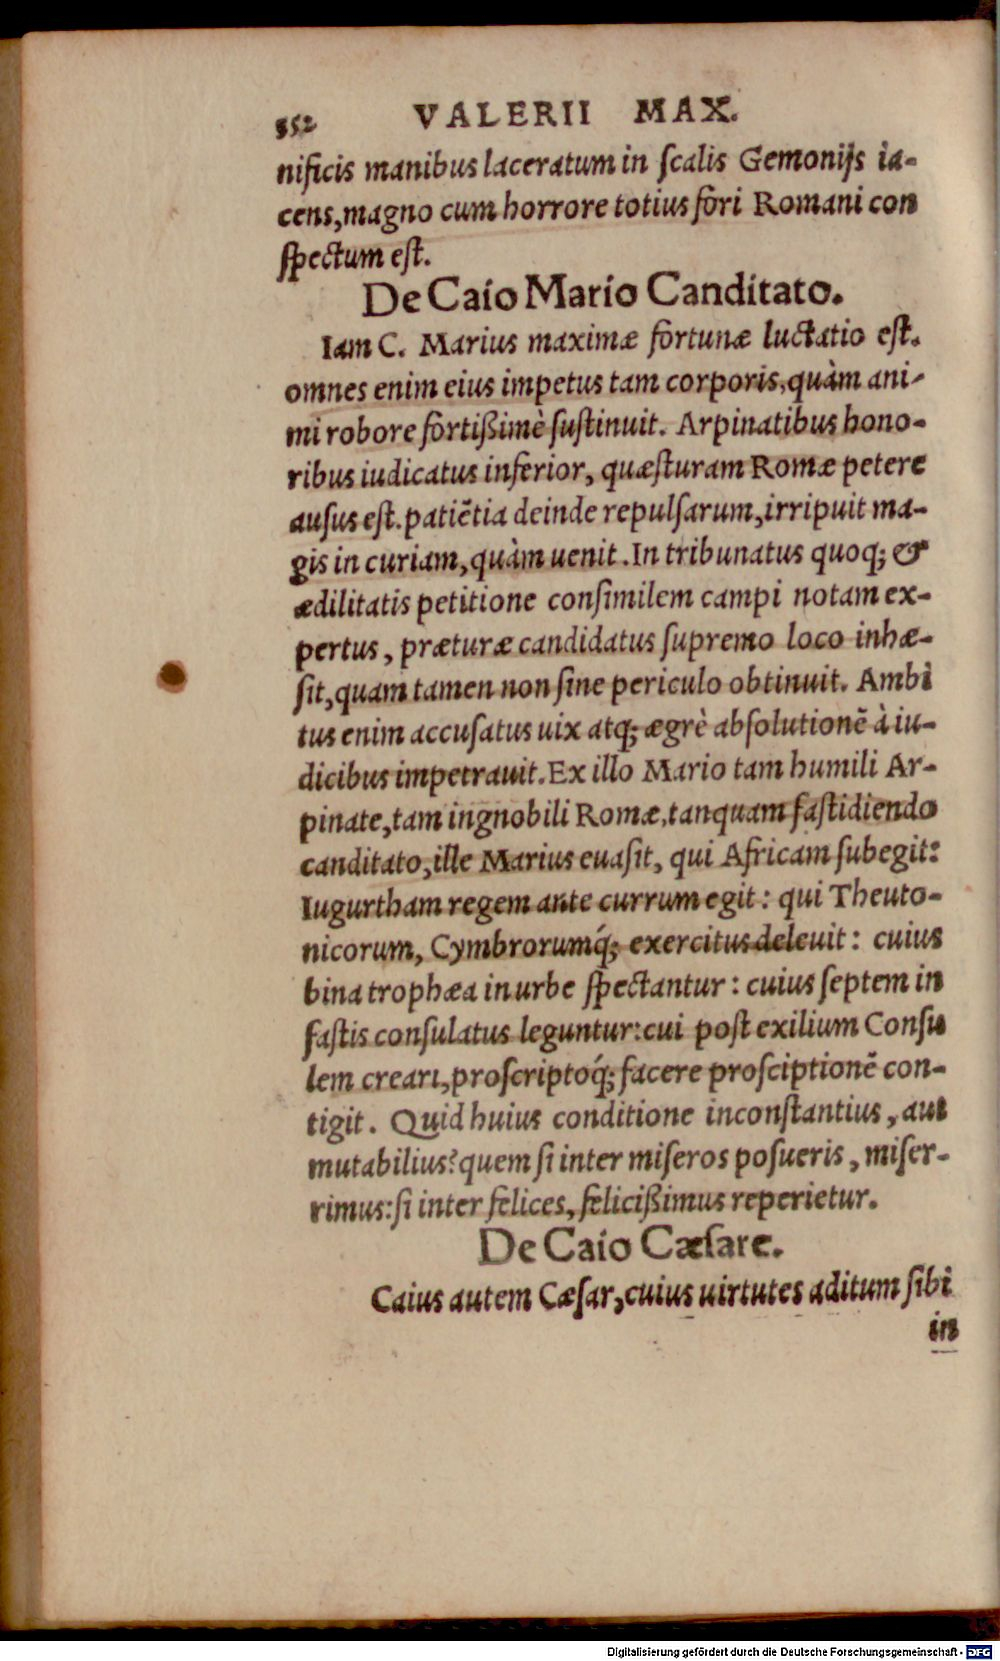 352 VALERII MAX.
nificis manibus laceratum in ſcalis Gemonijs ia-
cens,magno cum horrore totius fori Romani con
ſpectum eſt.
De Caio Mario Canditato.
Iam C. Marius maximæ fortunæ luctatio eſt.
omnes enim eius impetus tam corporis,quàm ani-
mi robore fortißimè ſuſtinuit. Arpinatibus hono-
ribus iudicatus inferior, quæſturam Romæ petere
auſus eſt.patiẽtia deinde repulſarum,irripuit ma-
gis in curiam,quàm uenit.In tribunatus quoq; &
ædilitatis petitione conſimilem campi notam ex-
pertus, præturæ candidatus ſupremo loco inhæ-
ſit,quam tamen non ſine periculo obtinuit. Ambi
tus enim accuſatus uix atq; ægrè abſolutionẽ à iu-
dicibus impetrauit.Ex illo Mario tam humili Ar-
pinate,tam ingnobili Romæ,tanquam faſtidiendo
canditato,ille Marius euaſit, qui Africam ſubegit:
Iugurtham regem ante currum egit: qui Theuto-
nicorum, Cymbrorumq́; exercitus deleuit: cuius
bina trophæa in urbe ſpectantur: cuius ſeptem in
faſtis conſulatus leguntur:cui poſt exilium Conſu
lem creari,proſcriptoq́; facere proſciptionẽ con-
tigit. Quid huius conditione inconſtantius, aut
mutabilius?quem ſi inter miſeros poſueris, miſer-
rimus:ſi inter felices, felicißimus reperietur.
De Caio Cæſare.
Caius autem Cæſar,cuius uirtutes aditum ſibi
in
Digitalisierung gefördert durch die Deutsche Forschungsgemeinschaft - DFG